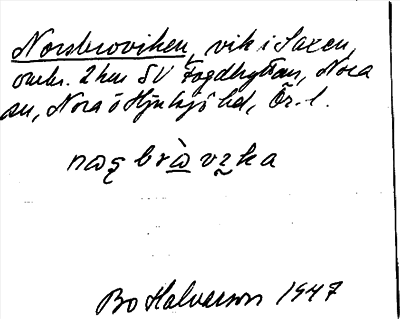 Norsbroviken, vik i Saxen,
omkr. 2 km SV Fogdhyttan, Nora
sn, Nora o Hjulsjö hd, Ör. l.
Bo Halvarson 1947